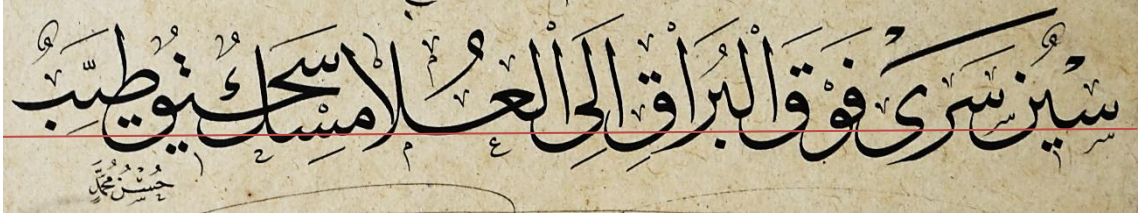 سِينٌ سَرَى فَوْقَ الْبُرَاقِ إِلَى الْعُلَا مِسْكٌ سَحِيقٌ طَيِّبٌ
حُسْن مُحَمَّد